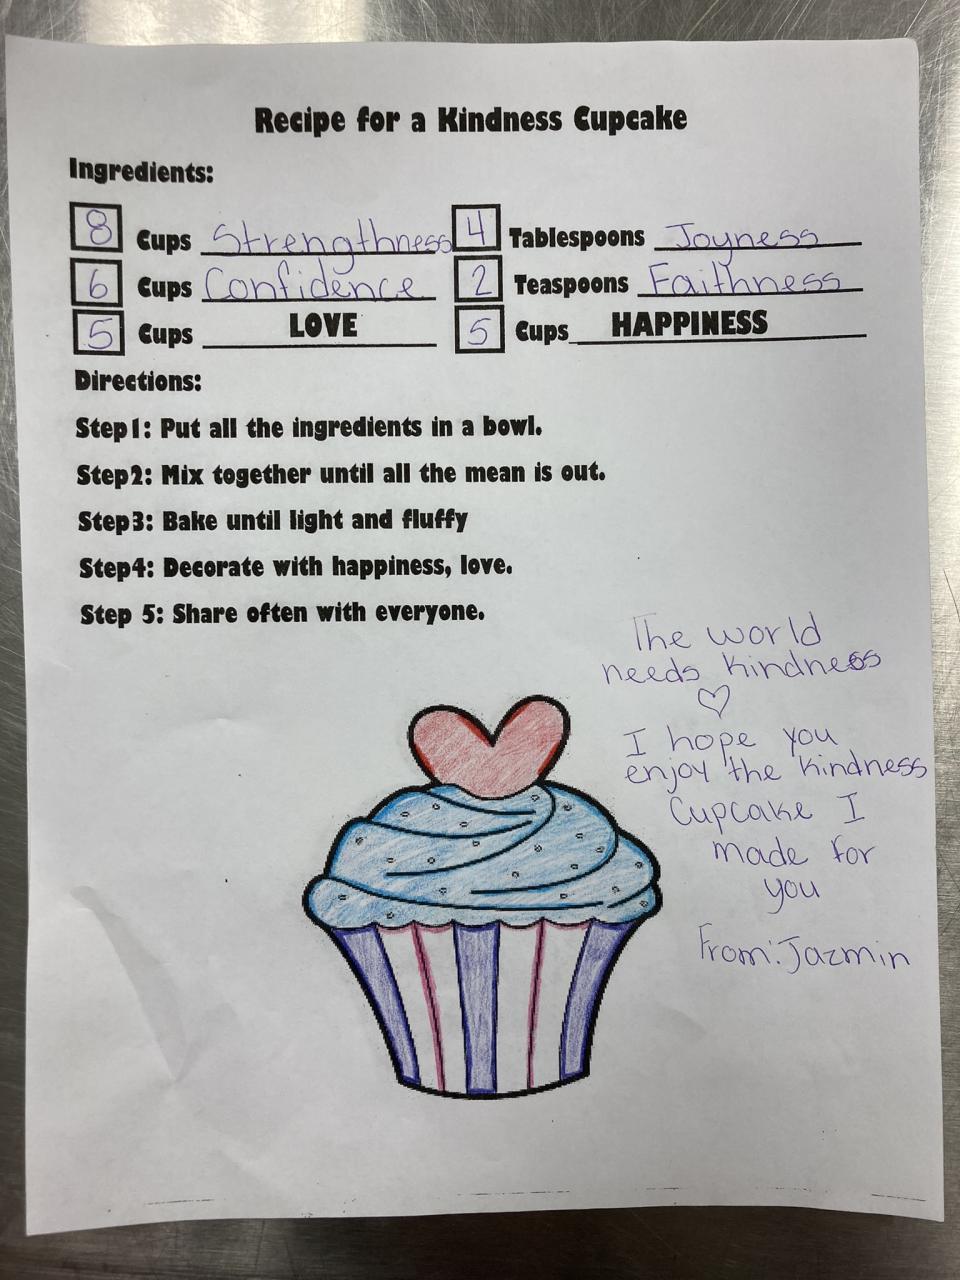 Recipe for a Kindness Cupcake
Ingredients:
8 Cups Strengthness 4 Tablespoons Joyness
6 Cups Confidence 2 Teaspoons Faithness
5 Cups LOVE 5 Cups HAPPINESS
Directions:
Step1: Put all the ingredients in a bowl.
Step2: Mix together until all the mean is out.
Step3: Bake until light and fluffy
Step4: Decorate with happiness, love.
Step 5: Share often with everyone.
The world
needs kindness
♡
I hope you
enjoy the kindness
Cupcake I
made for
you
From: Jazmin